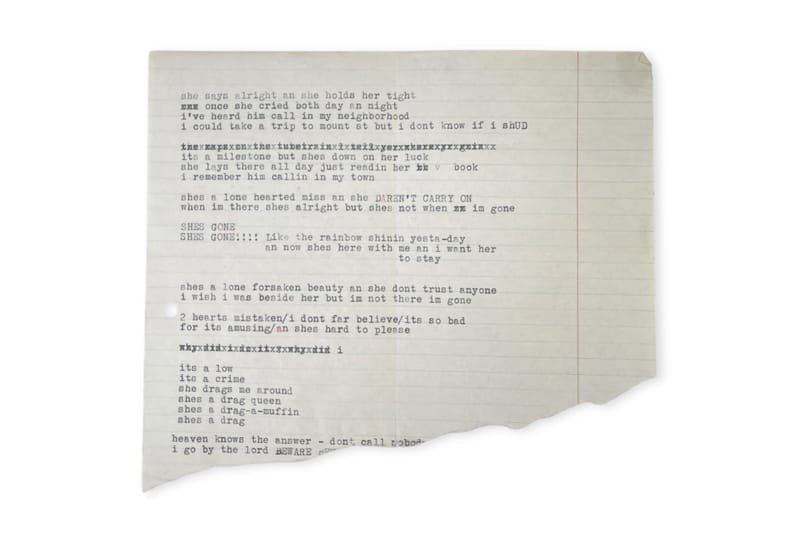 she says alright an she holds her tight
once she cried both day an night
i've heard him call in my neighborhood
i could take a trip to mount st but i dont know if i shUD
its a milestone but shes down on her luck
she lays there all day just readin her v book
i remember him callin in my town
shes a lone hearted miss an she DAREN'T CARRY ON
when im there shes alright but shes not when im gone
SHES GONE
SHES GONE!!!! Like the rainbow shinin yesta-day
an now shes here with me an i want her
to stay
shes a lone forsaken beauty an she dont trust anyone
i wish i was beside her but im not there im gone
2 hearts mistaken/i dont far believe/its so bad
for its amusing/an shes hard to please
why did i do it? why did i
its a low
its a crime
she drags me around
shes a drag queen
shes a drag-a-muffin
shes a drag
heaven knows the answer - dont call nobod
i go by the lord BEWARE